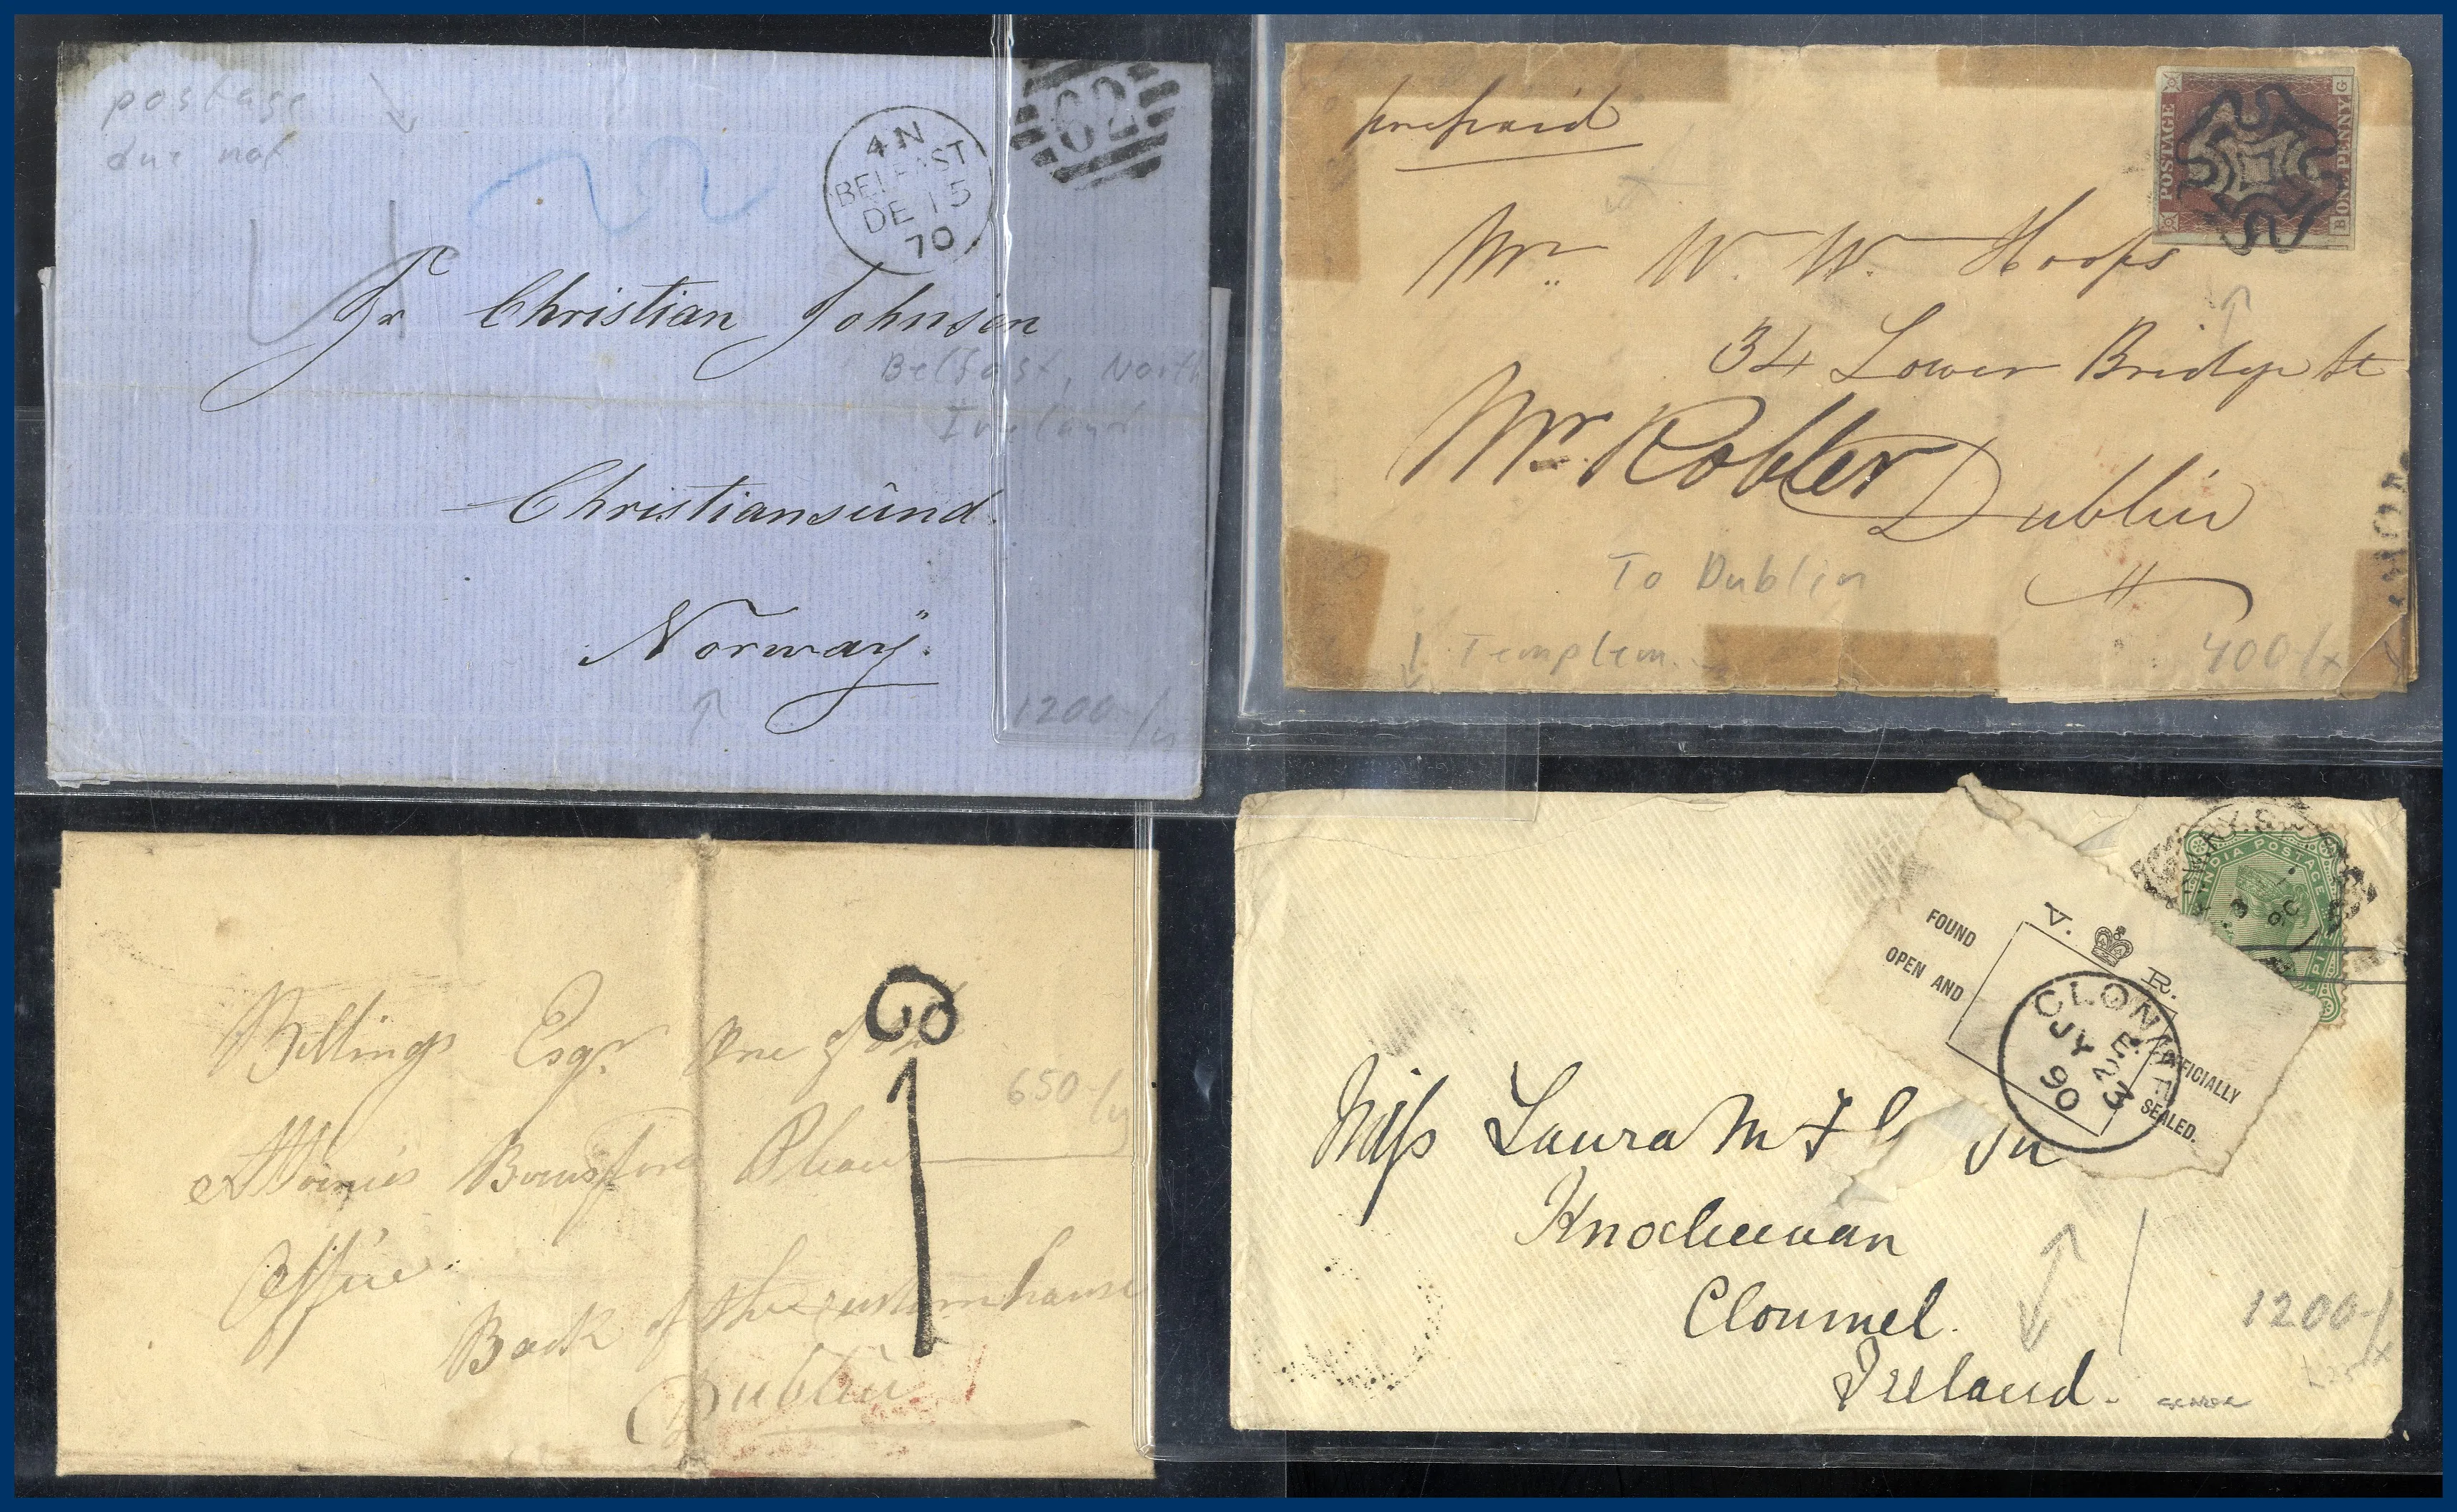 postage
due not
4 N
BELFAST
DE 15
70
62
Jr Christian Johnson
Belfast, North
Ireland
Christiansünd.
Norway.
1200-/
prepaid
POSTAGE
ONE PENNY
B G
Mr. W. W. Hoops
34 Lower Bridge St
Mr. Robter
Dublin
To Dublin
Templem.
400-/x
Billings Esqr One of
650-/
Office
Back of the customhouse
Dublin
INDIA POSTAGE
FOUND
OPEN AND
V. R.
OFFICIALLY
SEALED.
CLONMEL
E
JY 23
90
Miss Laura M
Clonmel.
Ireland.
1200-/